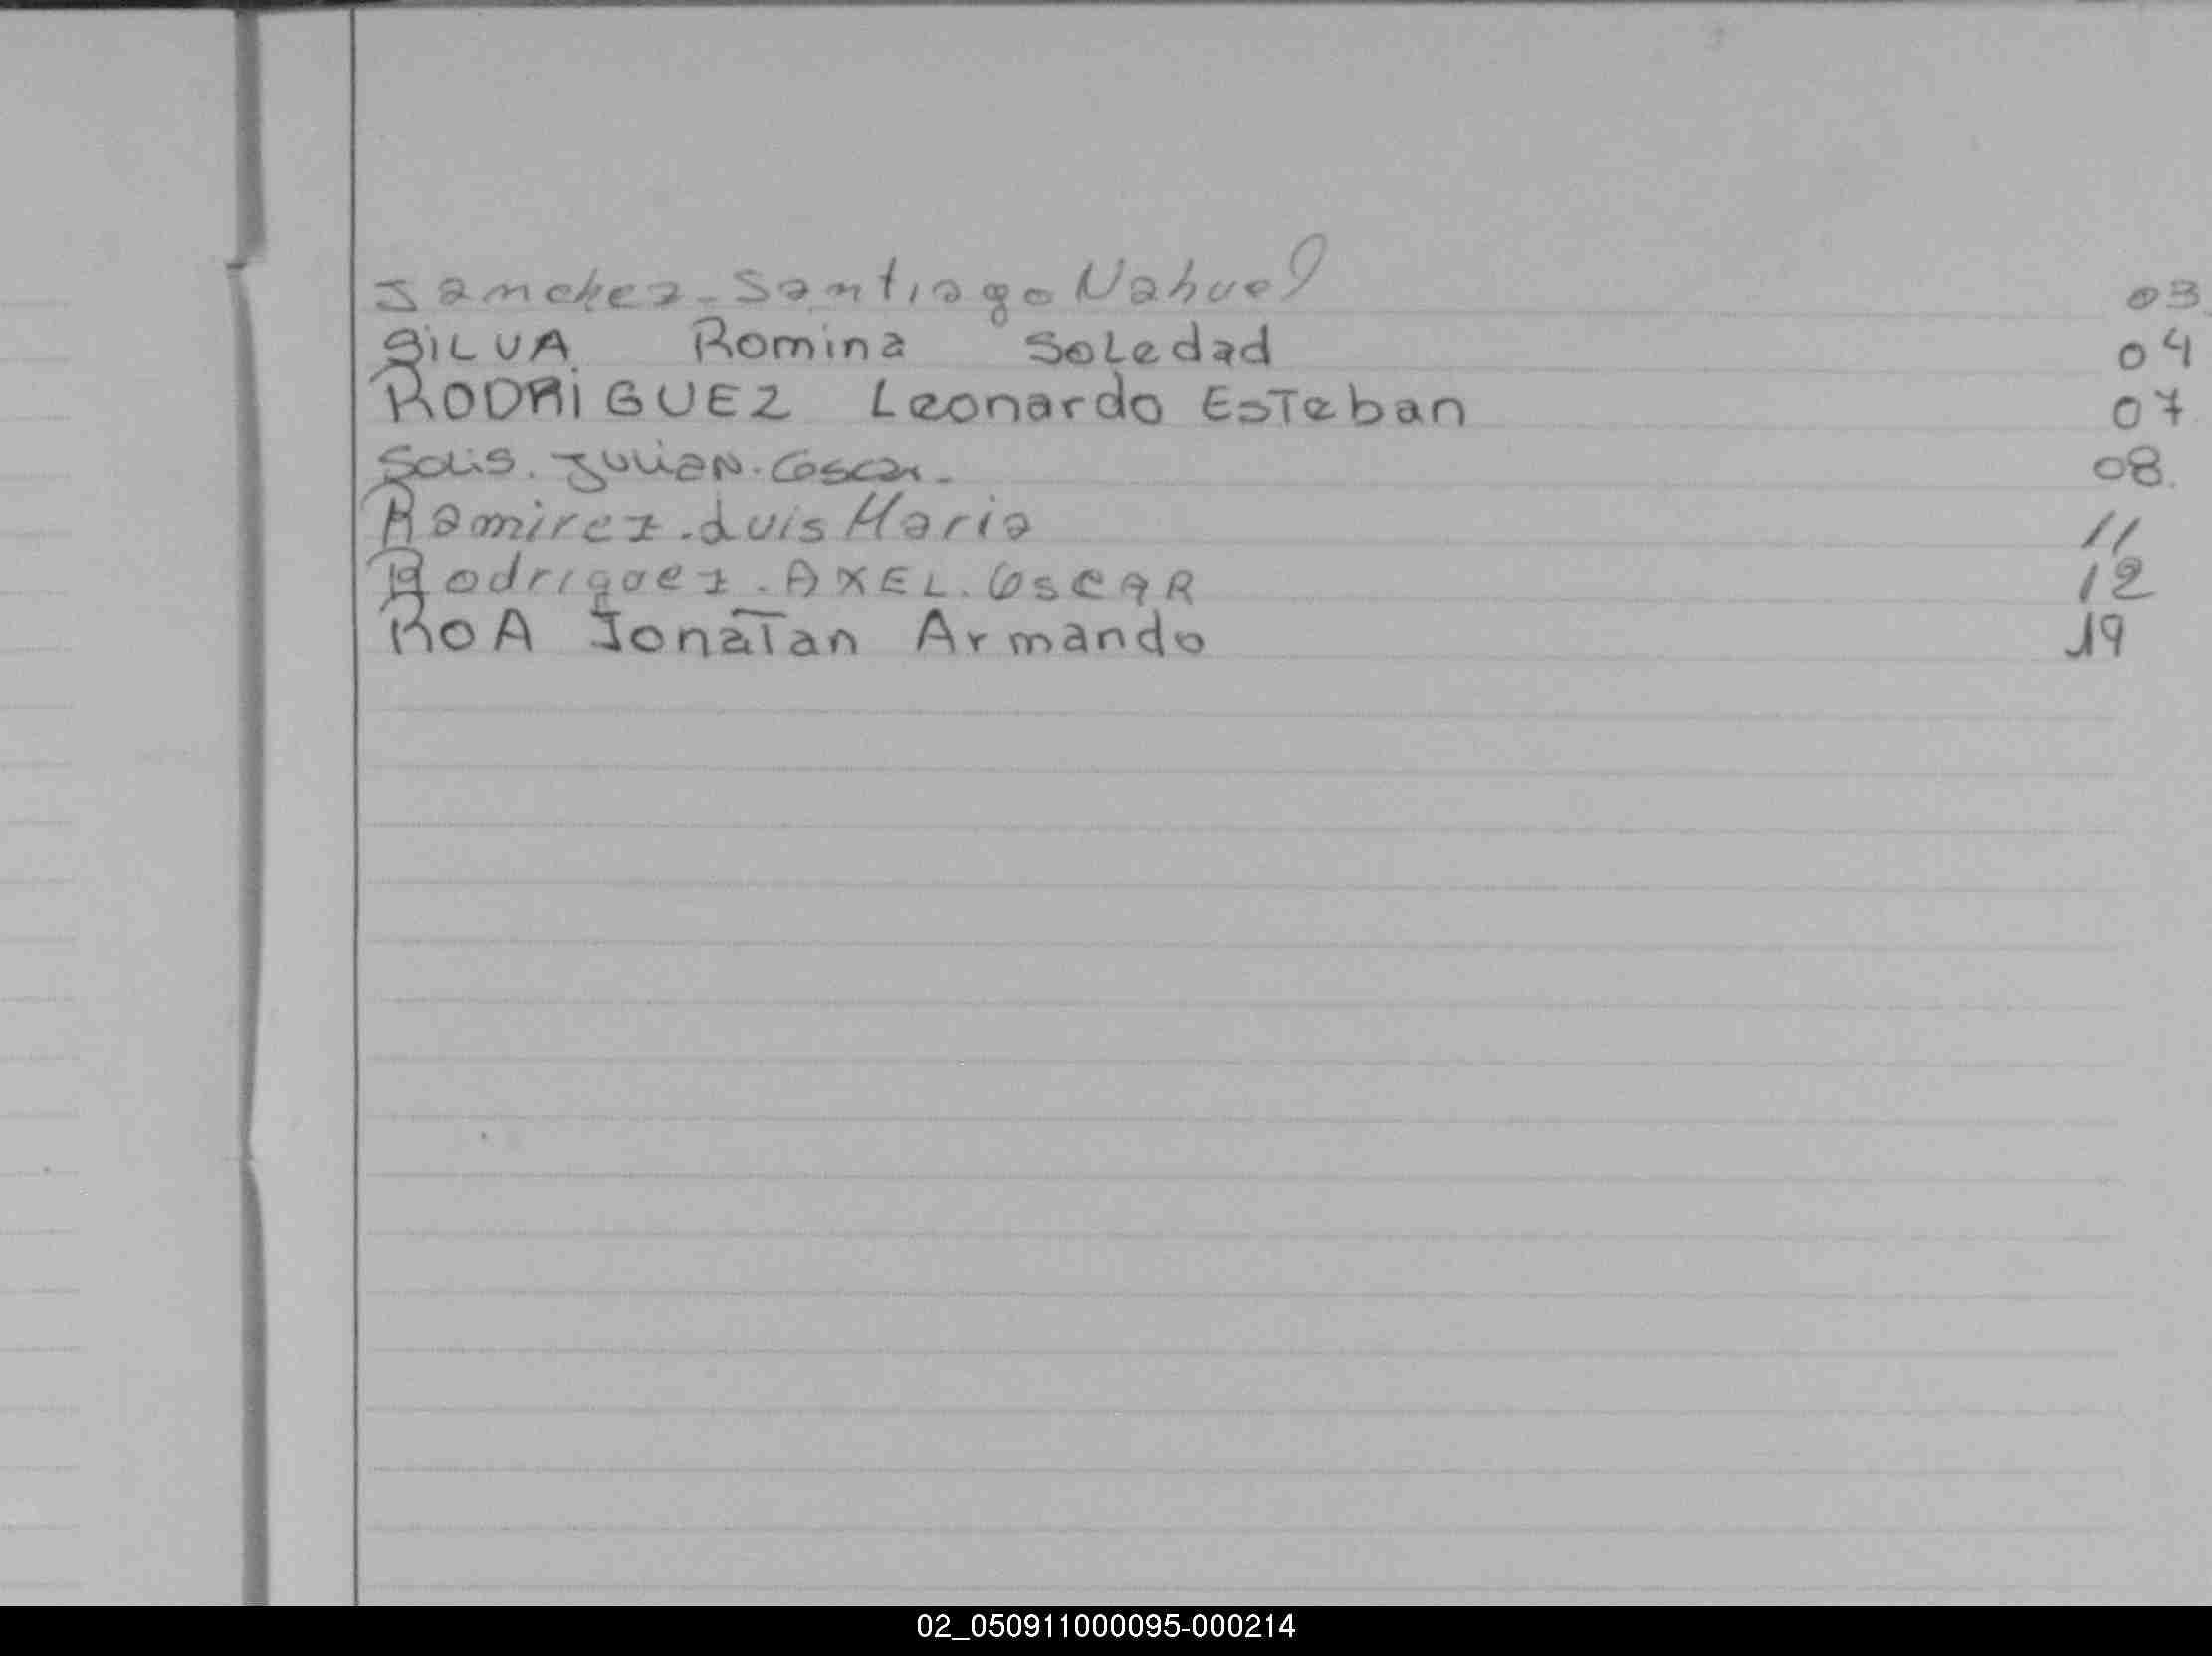 Sanchez-Santiago Nahuel 03
SILVA Romina Soledad 04
RODRIGUEZ Leonardo Esteban 07
Solis. Julian. Oscar. 08.
Ramirez. Luis Maria 11
Rodriguez. AXEL. OSCAR 12
ROA Jonatan Armando 19
02_050911000095-000214